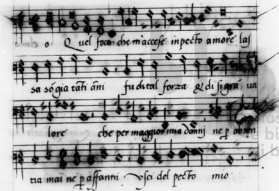 o Quel foco che m'accese in pecto amore las
sa so gia tãti ãni fu di tal forza & di si grã ua
lore che per maggior mia danni ne p absen
tia mai ne p affanni usci del pecto mio